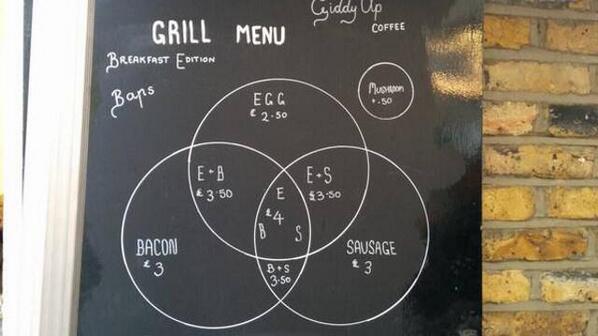 Giddy Up
COFFEE
GRILL MENU
BREAKFAST EDITION
Baps
MUSHROOM
+.50
EGG
£2.50
E+B
£3.50
E+S
£3.50
E
£4
B S
BACON
£3
SAUSAGE
£3
B+S
3.50